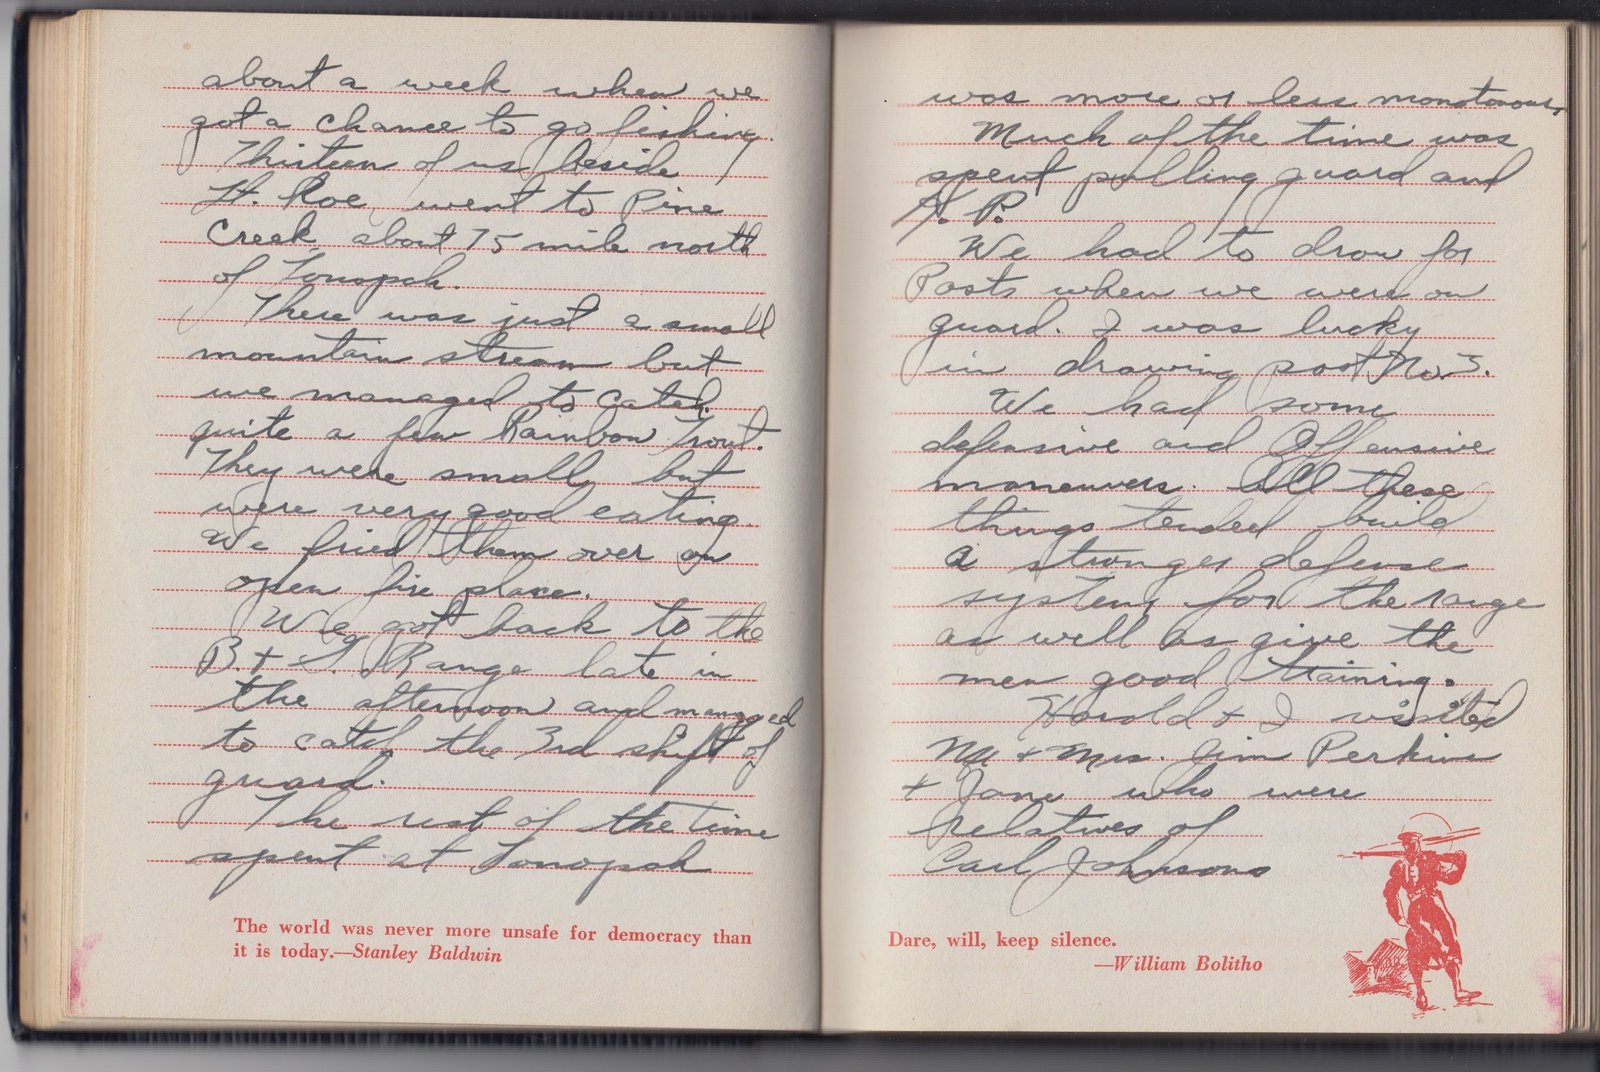 about a week when we
got a chance to go fishing.
Thirteen of us beside
Lt. Roe, went to Pine
Creek about 75 mile north
of Tonopah.
There was just a small
mountain stream but
we managed to catch
quite a few Rainbow Trout.
They were small, but
were very good eating.
We fried them over an
open fire place.
We got back to the
B. + G. Range late in
the afternoon and managed
to catch the 3rd shift of
guard.
The rest of the time
spent at Tonopah
The world was never more unsafe for democracy than
it is today.—Stanley Baldwin
was more or less monotonous,
Much of the time was
spent pulling guard and
K. P.
We had to draw for
Posts when we were on
guard. I was lucky
in drawing post No. 3.
We had some
defensive and Offensive
maneuvers. All these
things tended build
a stronger defense
system for the range
as well as give the
men good training.
Harold + I visited
Mr + Mrs. Jim Perkins
+ Jane who were
relatives of
Carl Johnsons
Dare, will, keep silence.
—William Bolitho